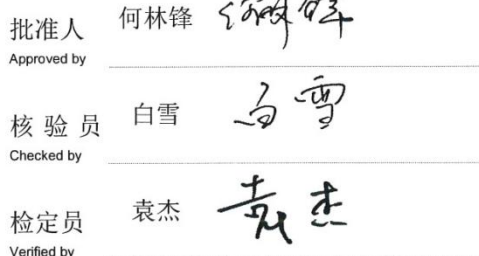 批准人 何林锋 何林锋
Approved by
核验员 白雪 白雪
Checked by
检定员 袁杰 袁杰
Verified by